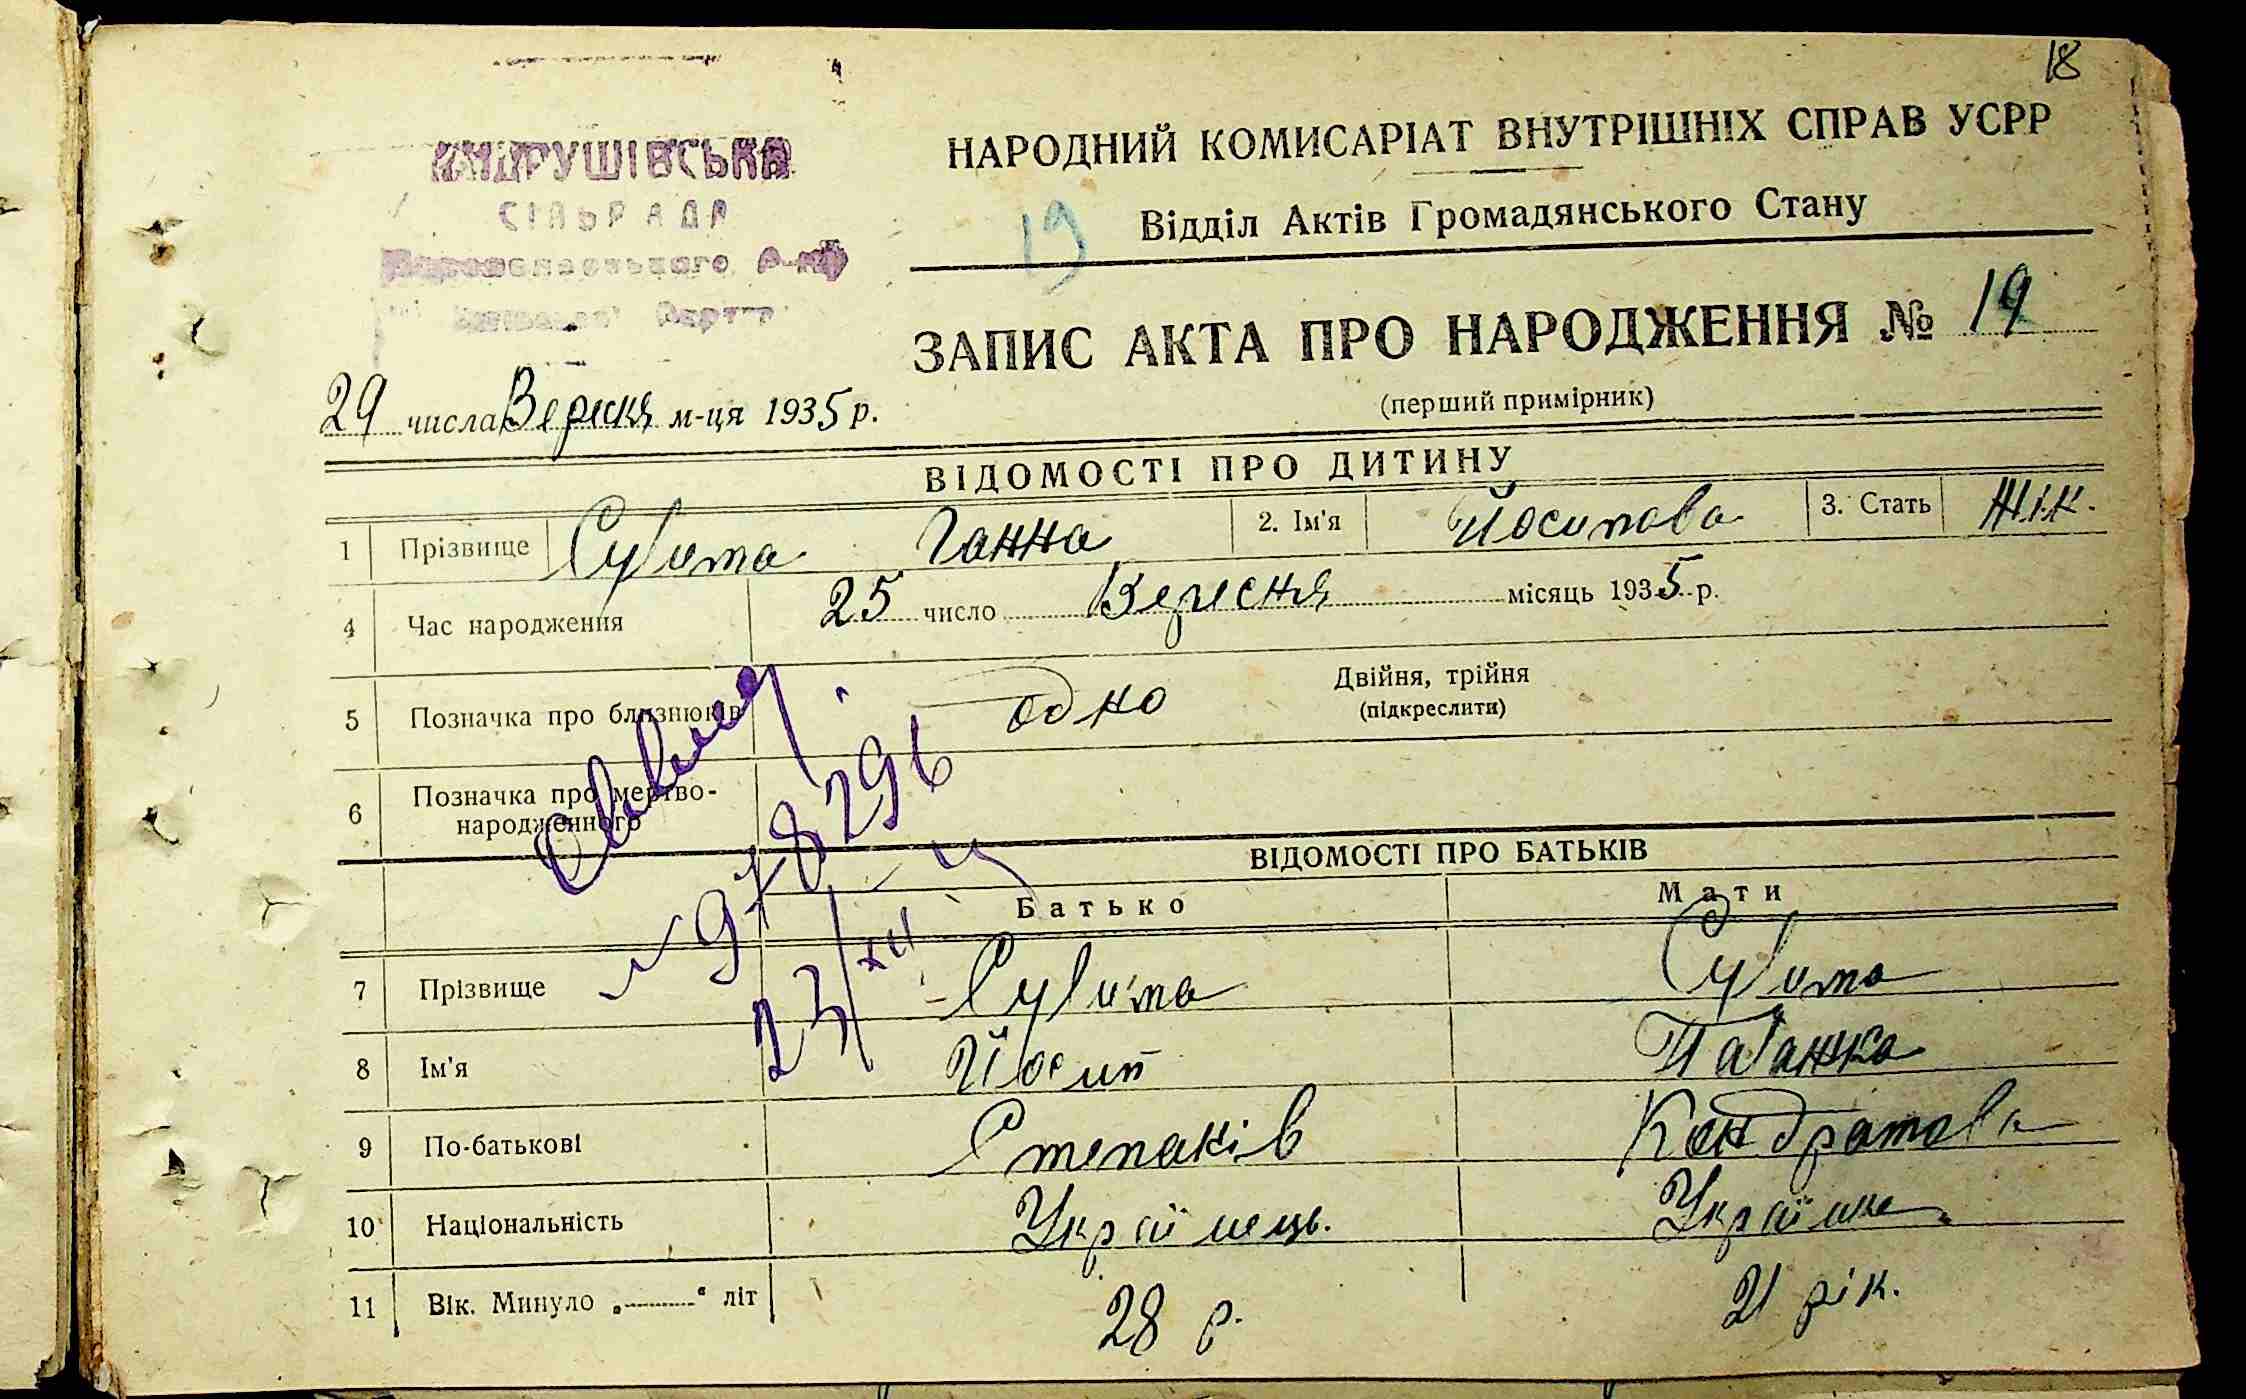 18
АНДРУШІВСЬКА
СІЛЬРАДА
Р-ну
НАРОДНИЙ КОМИСАРІАТ ВНУТРІШНІХ СПРАВ УСРР
19 Відділ Актів Громадянського Стану
ЗАПИС АКТА ПРО НАРОДЖЕННЯ № 19
(перший примірник)
29 числа Вересня м-ця 1935 р.
ВІДОМОСТІ ПРО ДИТИНУ
1 Прізвище Сувита Ганна 2. Ім'я Йосипова 3. Стать Жін.
4 Час народження 25 число Вересня місяць 1935 р.
5 Позначка про близнюків одно Двійня, трійня
(підкреслити)
6 Позначка про мертво-
народженного
№ 978296
23/XII
ВІДОМОСТІ ПРО БАТЬКІВ
Батько Мати
7 Прізвище Сувита Сувита
8 Ім'я Йосип Параска
9 По-батькові Степанів Кондратова
10 Національність Українець. Українка
11 Вік. Минуло „ “ літ 28 р. 21 рік.